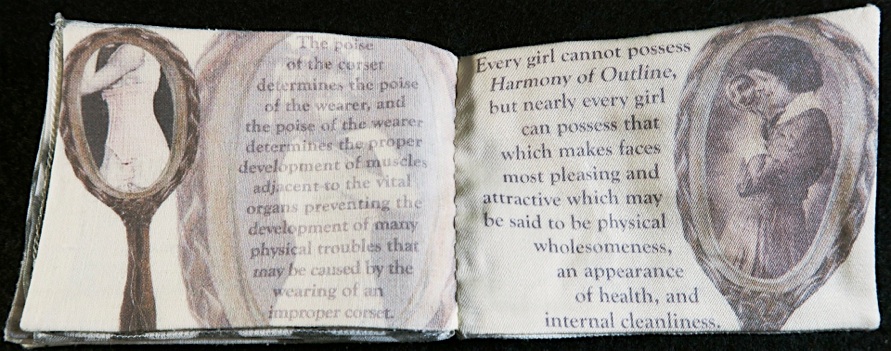 The poise
of the corset
determines the poise
of the wearer, and
the poise of the wearer
determines the proper
development of muscles
adjacent to the vital
organs preventing the
development of many
physical troubles that
may be caused by the
wearing of an
improper corset.
Every girl cannot possess
Harmony of Outline,
but nearly every girl
can possess that
which makes faces
most pleasing and
attractive which may
be said to be physical
wholesomeness,
an appearance
of health, and
internal cleanliness.